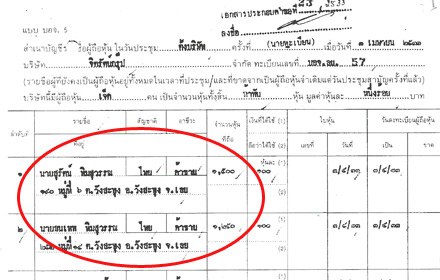 เอกสารประกอบคำขอที่
ลงชื่อ
(นายทะเบียน)
แบบ บอจ. 5
สำเนาบัญชีรายชื่อผู้ถือหุ้น ในวันประชุม ตั้งบริษัท ครั้งที่ เมื่อวันที่ ๓ เมษายน ๒๕๓๓
บริษัท จำกัด ทะเบียนเลขที่ บอจ.ลย. 57
(รายชื่อผู้ที่ยังคงเป็นผู้ถือหุ้นอยู่ทั้งหมดในเวลาที่ประชุม และที่ขาดจากเป็นผู้ถือหุ้นจำเดิมแต่วันประชุมสามัญครั้งที่แล้ว)
บริษัทนี้มีผู้ถือหุ้น เจ็ด คน เป็นจำนวนหุ้นทั้งสิ้น ห้าพัน หุ้น มูลค่าหุ้นละ หนึ่งร้อย บาท
ลำดับที่ รายชื่อ สัญชาติ อาชีวะ จำนวนหุ้นที่ถือ เงินที่ได้ใช้ (1) ใบหุ้น วันลงทะเบียนผู้ถือหุ้น
ที่อยู่ ถือว่าได้ใช้ (2) เลขที่ วันที่ เป็น ขาด
หุ้นละ
๑ นายสุรัตน์ ทิมสุวรรณ ไทย ค้าขาย ๑,๕๐๐ ๑๐๐ (1) ๓/๔/๓๓ ๓/๔/๓๓
๑๔๐ หมู่ที่ ๖ ต.วังสะพุง อ.วังสะพุง จ.เลย (2)
๒ นายธนเทพ ทิมสุวรรณ ไทย ค้าขาย ๑,๒๕๐ ๑๐๐ (1) ๓/๔/๓๓ ๓/๔/๓๓
หมู่ที่ ต.วังสะพุง อ.วังสะพุง จ.เลย (2)
(1)